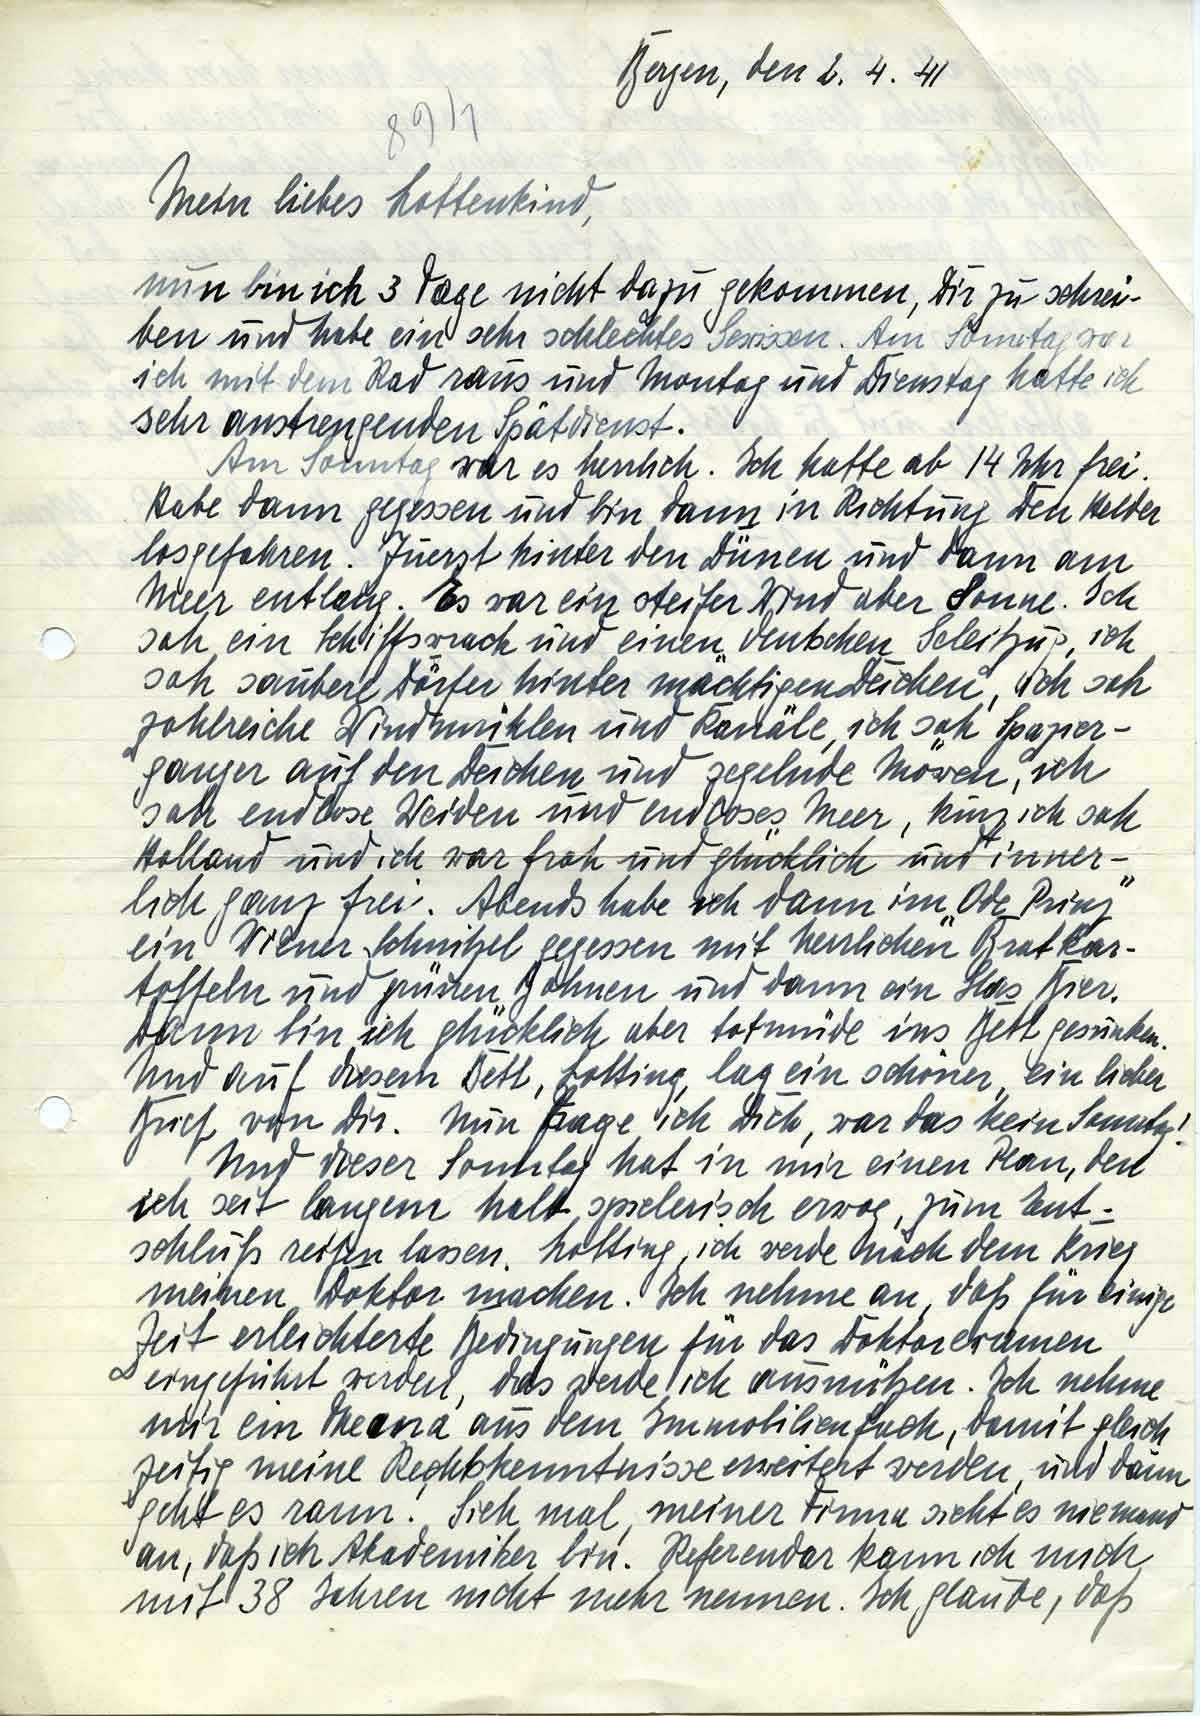 Bergen, den 2. 4. 41
89/1
Mein liebes Lottenkind,
nun bin ich 3 Tage nicht dazu gekommen, Dir zu schrei-
ben und habe ein sehr schlechtes Gewissen. Am Sonntag war
ich mit dem Rad raus und Montag und Dienstag hatte ich
sehr anstrengenden Spätdienst.
Am Sonntag war es herrlich. Ich hatte ab 14 Uhr frei.
Habe dann gegessen und bin dann in Richtung Den Helder
losgefahren. Zuerst hinter den Dünen und dann am
Meer entlang. Es war ein steifer Wind aber Sonne. Ich
sah ein Schiffswrack und einen deutschen Geleitzug, ich
sah saubere Dörfer hinter mächtigen Deichen, ich sah
zahlreiche Windmühlen und Kanäle, ich sah Spazier-
gänger auf den Deichen und segelnde Möwen, ich
sah endlose Weiden und endloses Meer, kurz ich sah
Holland und ich war froh und glücklich und inner-
lich ganz frei. Abends habe ich dann im „Ode Prinz"
ein Wiener Schnitzel gegessen mit herrlichen Bratkar-
toffeln und grünen Bohnen und dann ein Glas Bier.
Dann bin ich glücklich aber totmüde ins Bett gesunken.
Und auf diesem Bett, Lotting, lag ein schöner, ein lieber
Brief von Dir. Nun frage ich Dich, war das kein Sonntag!
Und dieser Sonntag hat in mir einen Plan, den
ich seit langem halb spielerisch erwog, zum Ent-
schluß reifen lassen. Lotting, ich werde nach dem Krieg
meinen Doktor machen. Ich nehme an, daß für einige
Zeit erleichterte Bedingungen für das Doktorexamen
eingeführt werden, das werde ich ausnützen. Ich nehme
mir ein Thema aus dem Immobilienfach, damit gleich
zeitig meine Rechtskenntnisse erweitert werden, und dann
geht es rann! Sieh mal, meiner Firma sieht es niemand
an, daß ich Akademiker bin. Referendar kann ich mich
mit 38 Jahren nicht mehr nennen. Ich glaube, daß